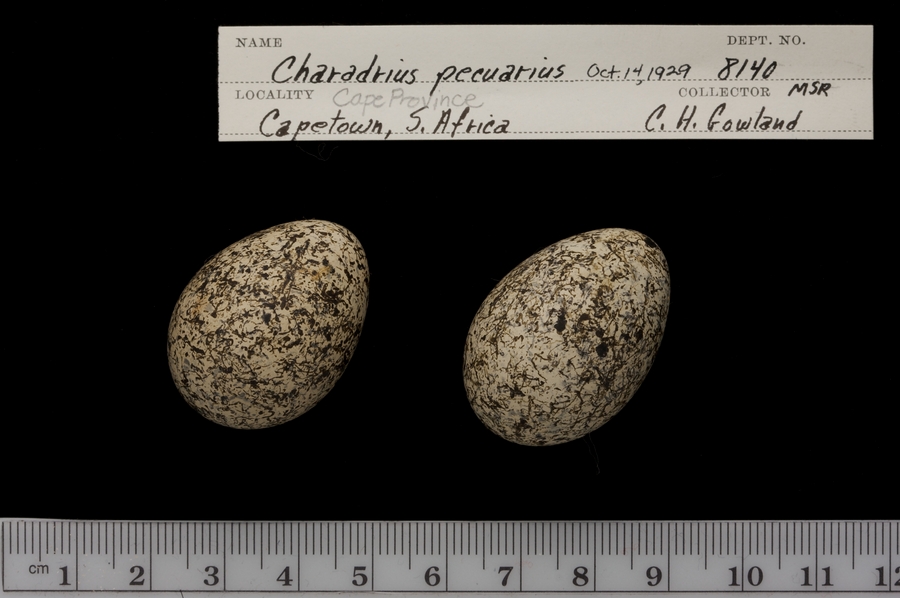 NAME DEPT. NO.
Charadrius pecuarius Oct. 14, 1929 8140
LOCALITY Cape Province COLLECTOR MSR
Capetown, S. Africa C. H. Gowland
cm 1 2 3 4 5 6 7 8 9 10 11 12